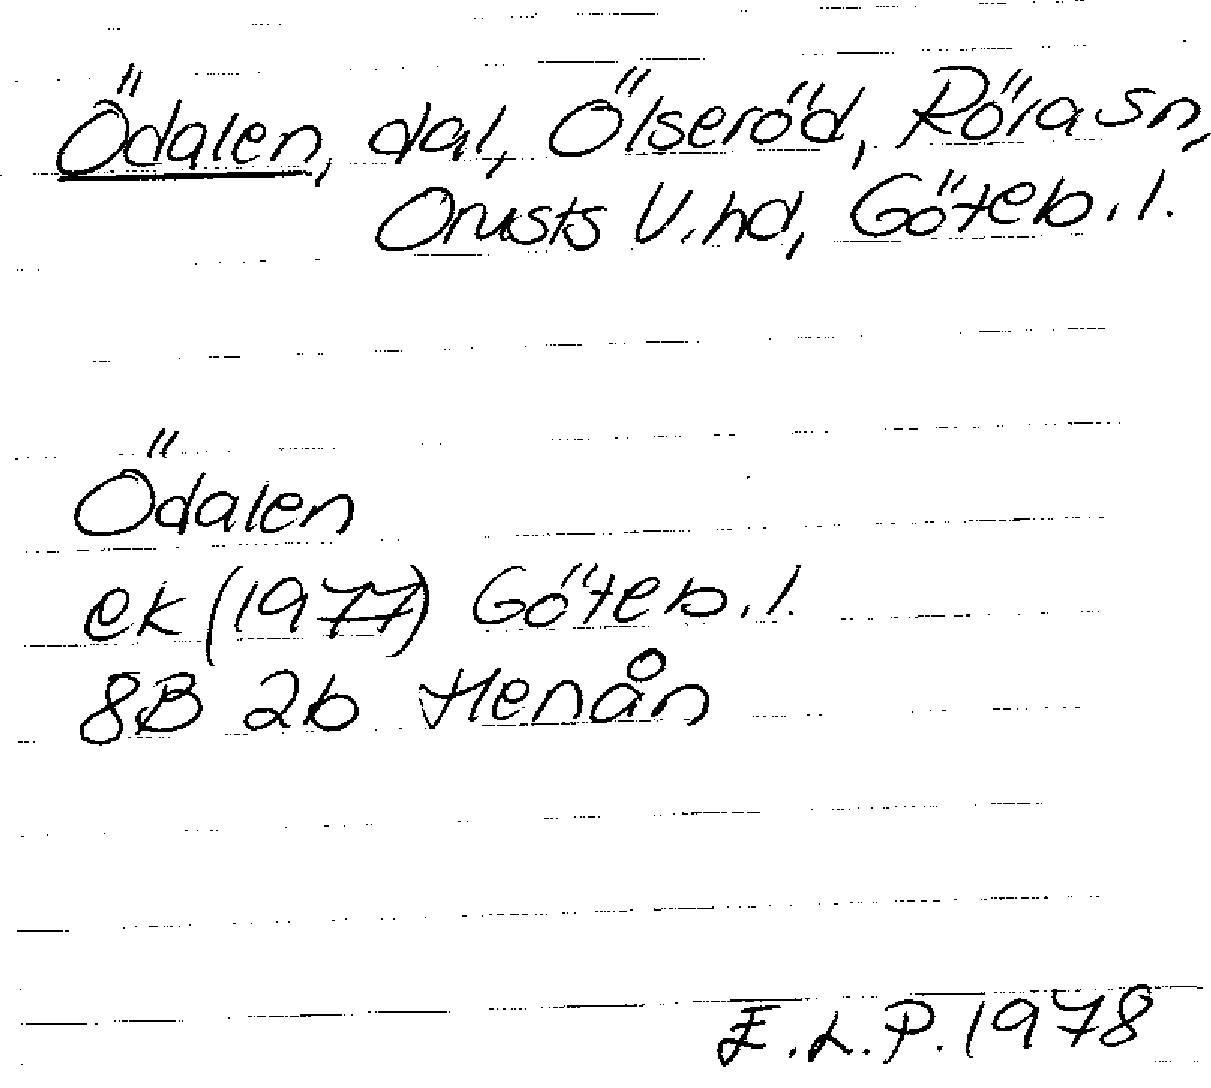 Ödalen, dal, Ölseröd, Röra sn,
Orusts V. hd, Göteb. l.
Ödalen
ek (1977) Göteb. l.
8B 2b Henån
E. L. P. 1978